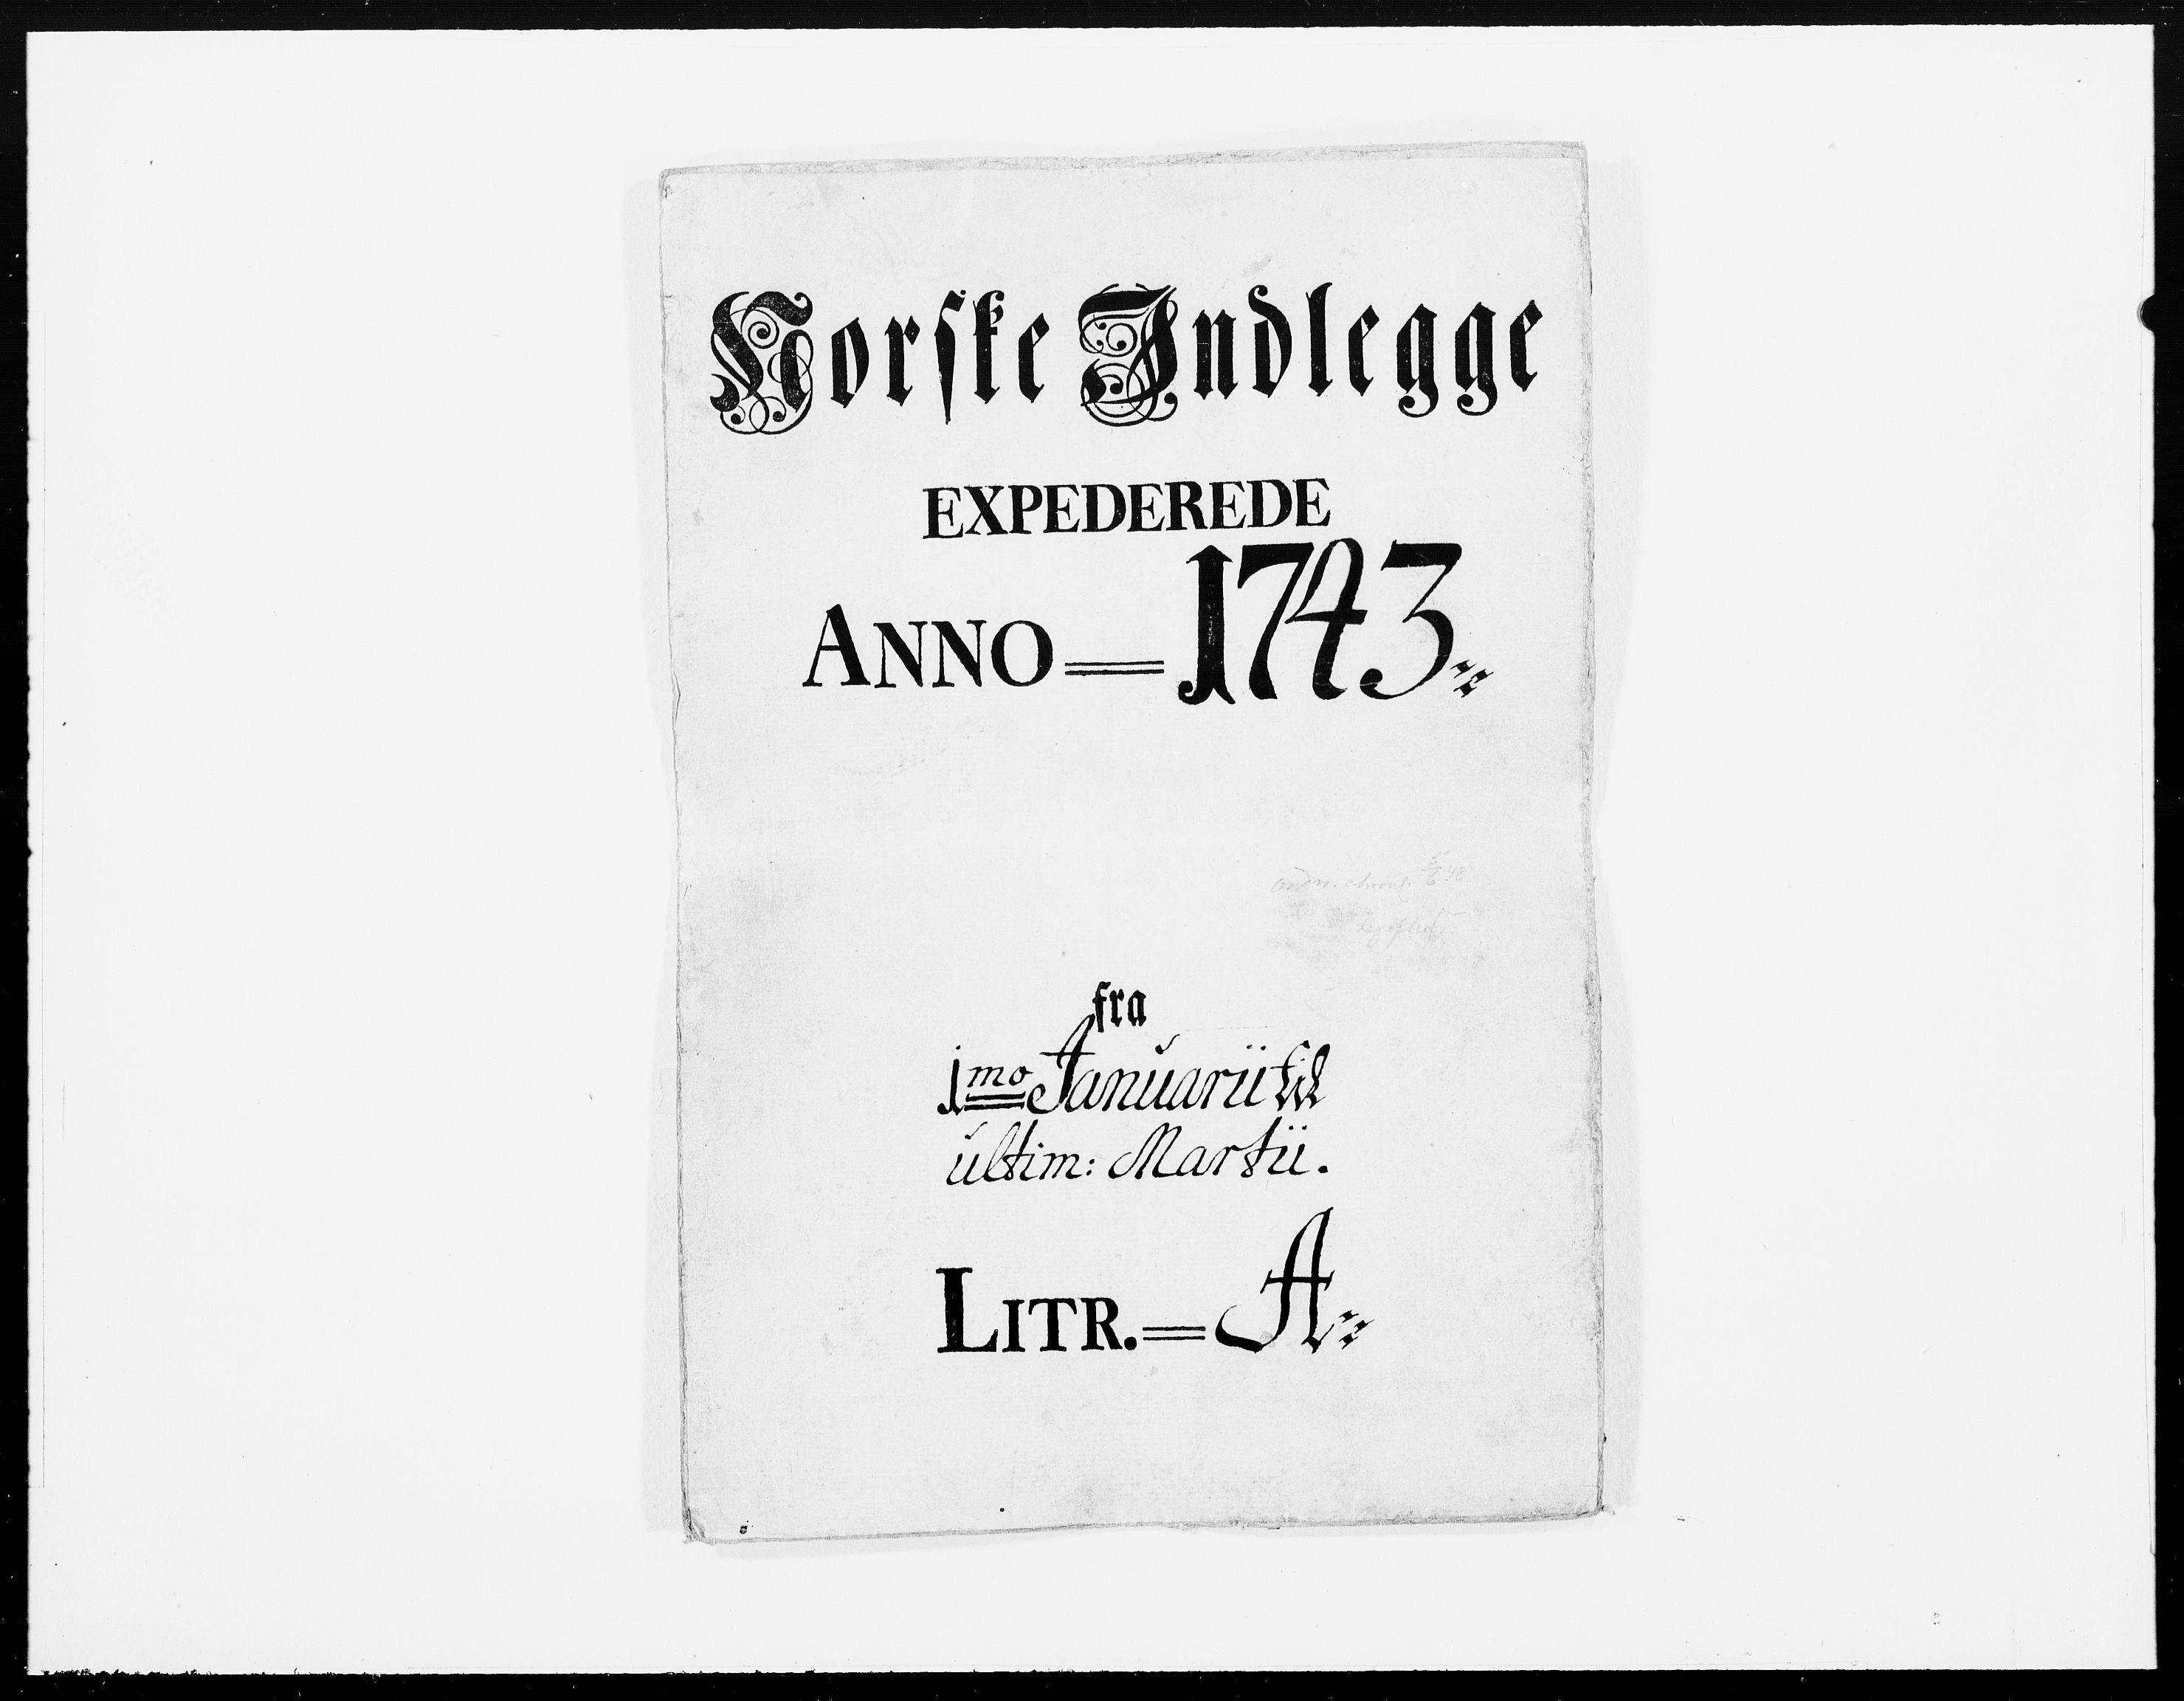 Norske Indlegge
EXPEDEREDE
ANNO = 1743
fra
1mo Januarii til
ultim: Martii.
LITR. = A